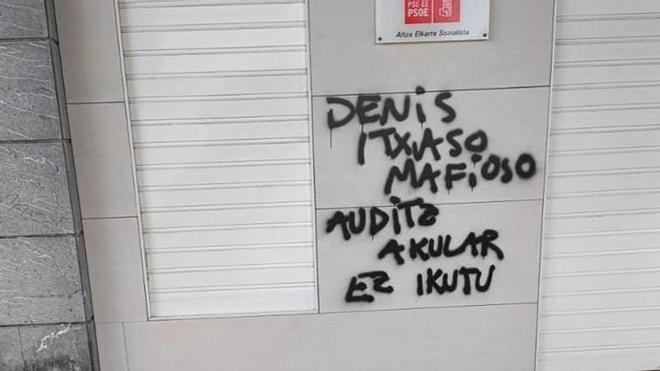 PSE-EE
PSOE
Altza Elkarte Sozialista
DENIS
ITXASO
MAFiOSO
AUDITZ
AKULAR
EZ IKUTU